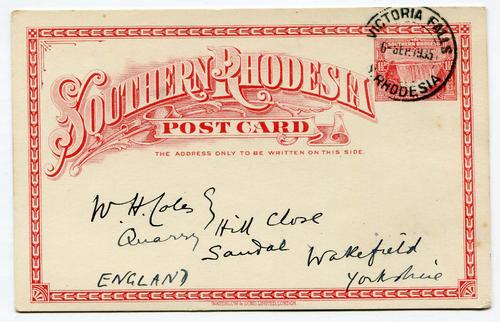 VICTORIA FALLS
6 SEP 1935
S. RHODESIA
SOUTHERN RHODESIA
SOUTHERN RHODESIA
POST CARD
THE ADDRESS ONLY TO BE WRITTEN ON THIS SIDE.
W. H. Coles Esq
Quarry Hill Close
Sandal Wakefield
ENGLAND Yorkshire